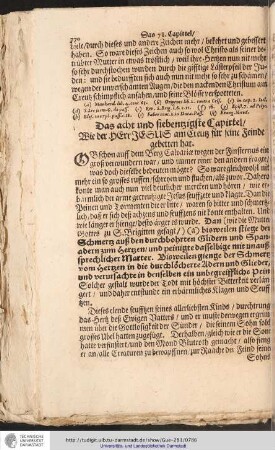 Das 78. Capittel/
Theile/durch dieses und andere Zeichen mehr/ bekehrt und gebessert
haben. So ware dieses Zeichen auch so wol Christo als seiner be-
trübter Mutter in etwas tröstlich/ weil ihre Hertzen nun mit nicht
so sehr durchstochen wurden durch die gifftige Lästerpfeil der Ju-
den; und sie bedurfften sich auch nun mit nicht so sehr zu schämen/
wegen der unverschämten Augen/die den nackenden Christum am
Creutz schimpflich ansahen/ und seine Blösse verspotteten.
Das acht und siebentzigste Capittel/
Wie der HErr JESUS am Creutz für seine Feinde
gebetten hat.
OBschon auff dem Berg Calvarie wegen der Finsternus ein
groß verwundern war/ und immer einer den andern fragte/
was doch dieselbe bedeuten möchte? So ware gleichwol nit
mehr ein so grosses ruffen/ schreyen und fluchen/ als zuvor. Daher
konte man auch nun viel deutlicher mercken und hören/ wie er-
bärmlich der arme gecreutzigte Jesus seufftzte und klagte. Dan das
Peinen und Tormenten die er leidete/ waren so unbeschreiblich groß/
daß er sich des ächzens und seufftzens nit konte enthalten. Und
wie länger er hienge/ desto ärger es wurde. Dan (wie die Mutter
Gottes zu S. Brigitten gesagt/) (a) bisweilen stiege der
Schmertz auß den durchbohrten Glidern und Spann-
adern zum Hertzen/ und peinigte dasselbige mit un auß-
sprechlicher Marter. Bisweilen gienge der Schmertz
vom Hertzen in die durchlöcherte Adern und Glieder,
und verursachte in denselben ein unbegreiffliche Pein
Solcher gestalt wurde der Todt mit höchster Bitterkeit verlän-
gert/ und daher entstunde ein erbärmliches Klagen und Seuff-
tzen.
Dieses elende seufftzen seines allerliebsten Kinds/ durchtrung
das Hertz deß Ewigen Vatters/ und er muste bewegen ergrim-
men über die Gottlosigkeit der Sünder/ die seinem Sohn solch
grosses Übel hatten zugefügt. Derhalben/gleich wie er die Sonn
hatte verfinstert/und den Mond Blutroth gemacht/ also fieng
er an/alle Creaturen zu bewaffnen/zur Raach der Feinde seines
Sohns
TECHNISCHE
UNIVERSITÄT
DARMSTADT
Universitäts- und Landesbibliothek Darmstadt